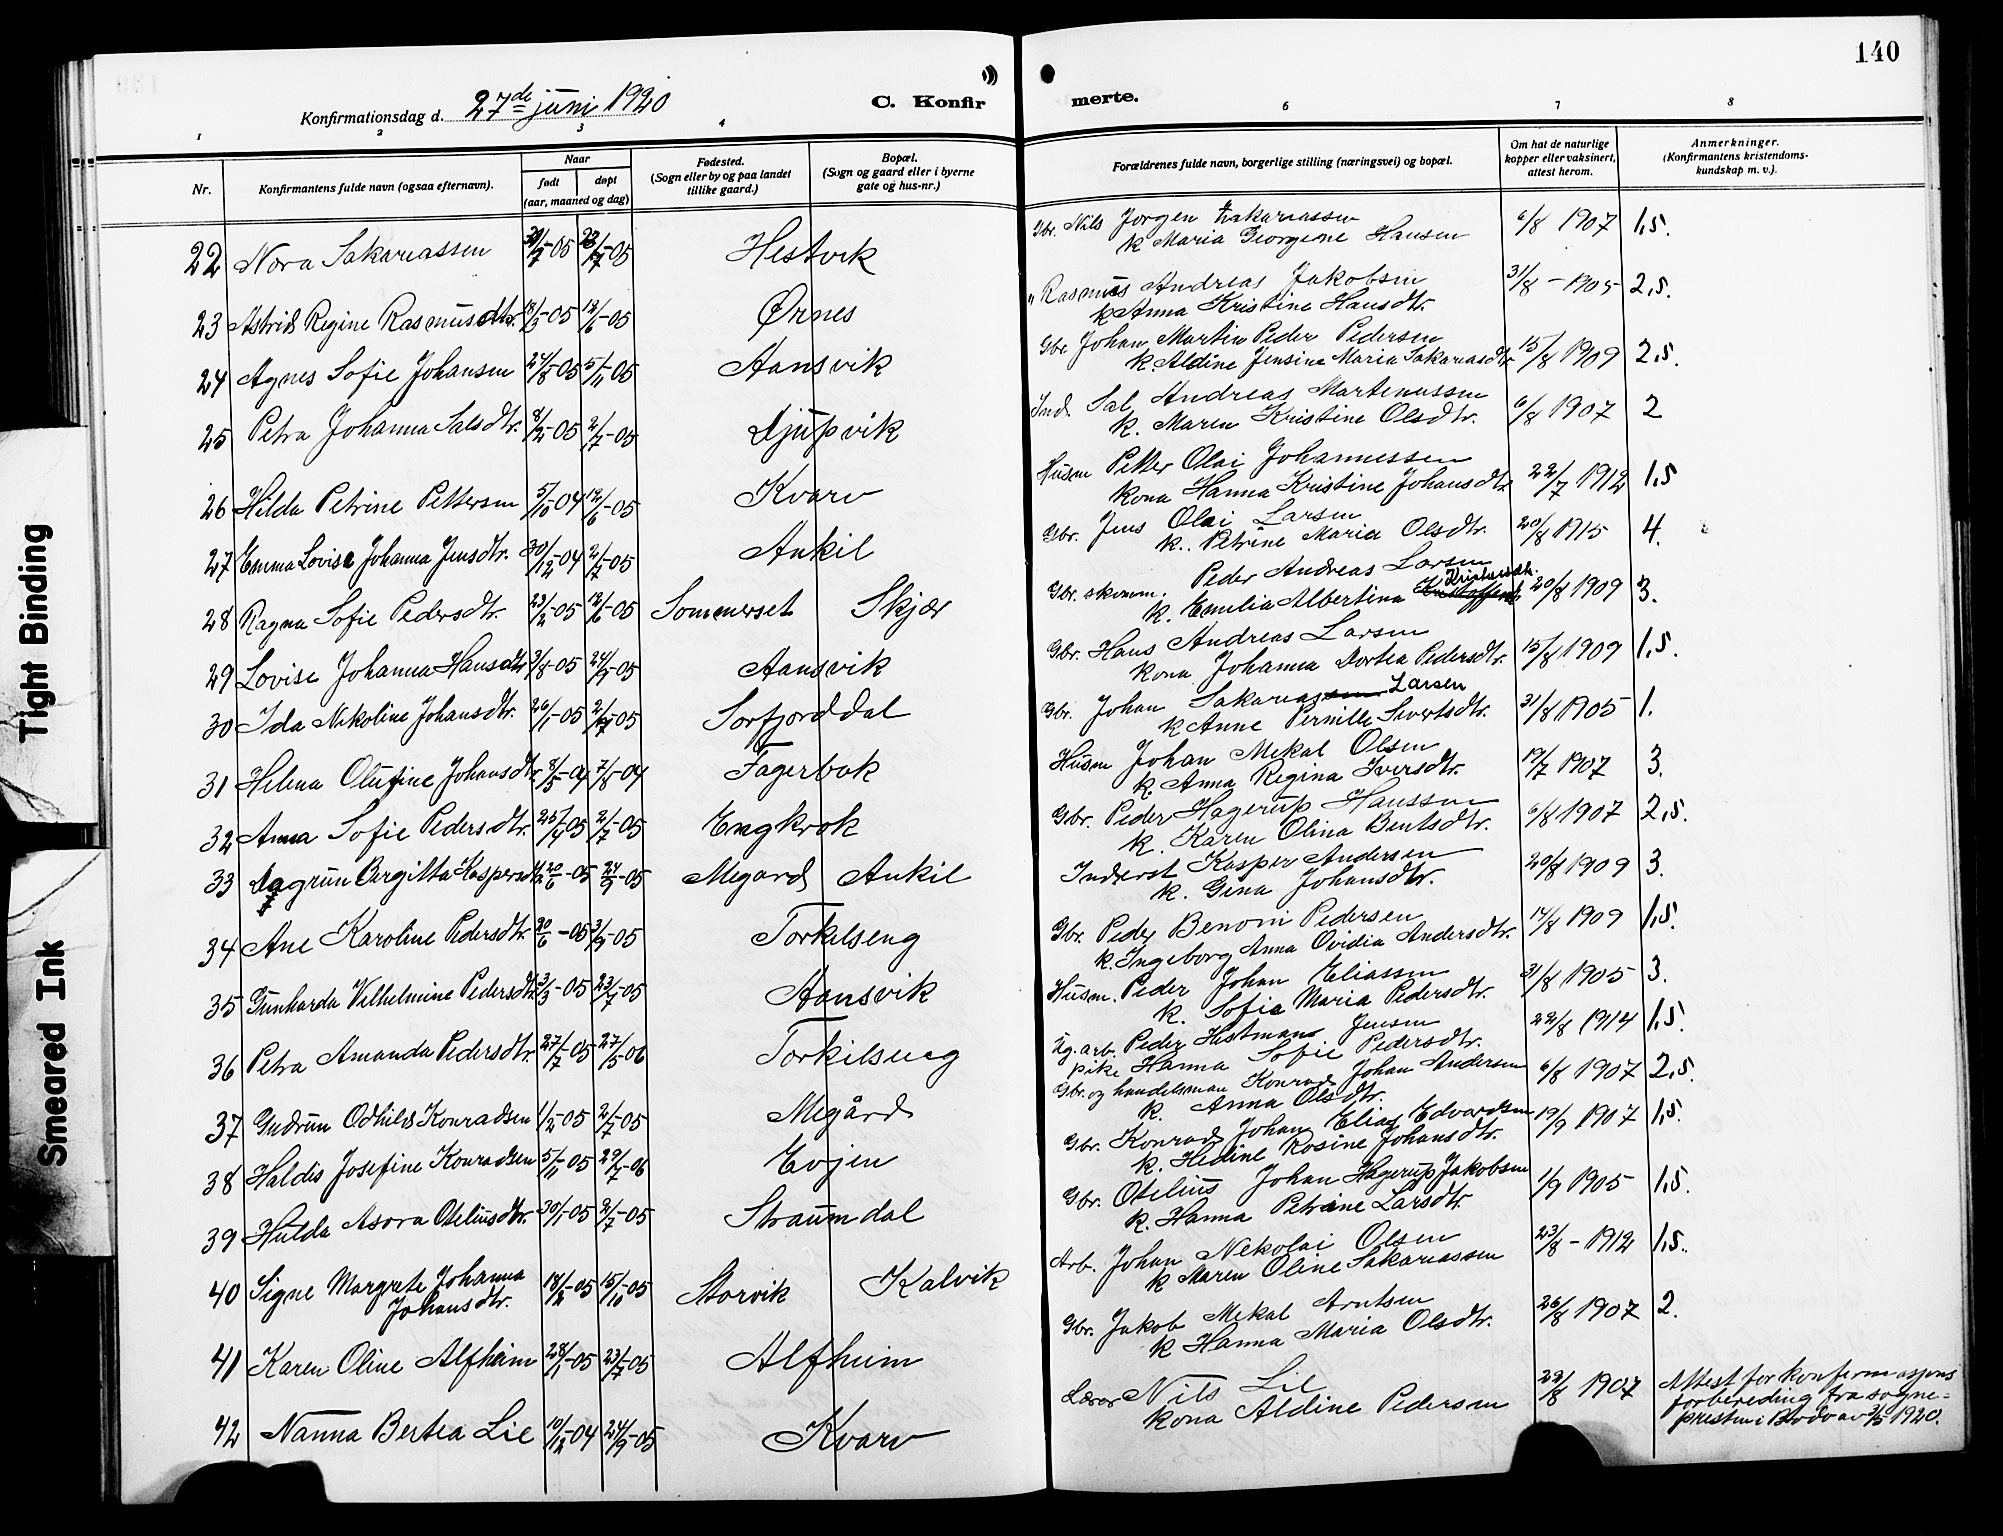 140
Konfirmationsdag d. 27de juni 1920
C. Konfirmerte.
1 2 3 4 6 7 8
Nr.
Konfirmantens fulde navn (ogsaa efternavn).
Naar
født døpt
(aar, maaned og dag)
Fødested.
(Sogn eller by og paa landet
tillike gaard.)
Bopæl.
(Sogn og gaard eller i byerne
gate og hus-nr.)
Forældrenes fulde navn, borgerlige stilling (næringsvei) og bopæl.
Om hat de naturlige
kopper eller vaksinert,
attest herom.
Anmerkninger.
(Konfirmantens kristendoms-
kundskap m. v.).
22 Nora Sakariassen Hestvik
Gbr. Nils Jørgen Zakariassen 6/8 1907 1,5.
k Maria Georgine Hansen
23 Astrid Regine Rasmusdtr. 18/3-05 12/6-05 Ørnes
" Rasmus Andreas Jakobsen 31/8-1905 2,5.
k Anna Kristine Hansdtr.
24 Agnes Sofie Johansen 24/8-05 5/11-05 Aansvik
Gbr Johan Martin Peder Pedersen 15/8 1909 2,5.
k. Aldine Jensine Maria Sakariasdtr
25 Petra Johanna Salsdtr. 8/2-05 2/7-05 Djupvik
Ind. Sal Andreas Martenussen 6/8 1907 2
k. Maren Kristine Olsdtr.
26 Hilda Petrine Pettersen 5/10-04 12/6-05 Kvarv
Husm Petter Olai Johannessen 22/7 1912 1,5
kona Hanna Kristine Johansdtr
27 Emma Lovise Johanna Jensdtr. 30/12-04 2/7-05 Ankil
Gbr. Jens Olai Larsen 20/8 1915 4.
k. Petrine Maria Olsdtr.
28 Ragna Sofie Pedersdtr. 23/2-05 12/6-05 Sommerset Skjær
Gbr. skomm. Peder Andreas Larsen 20/8 1909 3.
k. Emilia Albertina
29 Lovise Johanna Hansdtr 3/8-05 24/9-05 Aansvik
Gbr. Hans Andreas Larsen 15/8 1909 1,5.
kona Johanna Dortea Pedersdtr.
30 Ida Nikoline Johansdtr. 26/1-05 2/7-05 Sørfjorddal
Gbr. Johan Sakarias Larsen 31/8 1905 1.
k Anne Pernille Sivertsdtr.
31 Helena Olufine Johansdtr. Fagerbak
Husm Johan Mekal Olsen 19/7 1907 3.
k. Anna Regina Iversdtr.
32 Anna Sofie Pedersdtr. 25/4-05 2/7-05 Engkrok
Gbr. Peder Hagerup Hanssen 6/8 1907 2,5.
k. Karen Olina Bentsdtr.
33 Dagrun Birgitta Kaspersdtr 20/6-05 24/9-05 Megard Ankil
Inderst Kasper Andersen 20/8 1909 3.
k. Gina Johansdtr.
34 Ane Karoline Pedersdtr. 20/6-05 3/9-05 Torkilseng
Gbr. Peder Benoni Pedersen 14/8 1909 1,5
k. Ingeborg Anna Ovidia Andersdtr.
35 Gunharda Vilhelmine Pedersdtr 3/3-05 23/7-05 Aansvik
Husm. Peder Johan Eliassen 31/8 1905 3.
k. Sofie Maria Pedersdtr.
36 Petra Amanda Pedersdtr. 27/7-05 27/5-06 Torkilseng
Ug. arb. Peder Hestmans Jensen 22/8 1914 1,5.
pike Hanna Sofie Pedersdtr.
37 Gudrun Odhild Konradsen 1/2-05 2/7-05 Megård
Gbr. og handelsman Konrad Johan Andersen 6/8 1907 2,5.
k. Anna Olsdtr.
38 Haldis Josefine Konradsen 5/11-05 22/7-06 Evjen
Gbr. Konrad Johan Elias Edvardsen 19/9 1907 1,5.
k. Hedine Rosine Johansdtr.
39 Hulda Asora Oteliusdtr. 30/1-05 2/7-05 Straumdal
Gbr. Otelius Johan Hagerup Jakobsen 1/9 1905 1,5.
k. Hanna Petrine Larsdtr.
40 Signe Margrete Johanna 18/2-05 15/10-05 Storvik Kalvik
Johansdtr.
Arb. Johan Nekolai Olsen 23/8-1912 1,5.
k Maren Oline Sakariassen
41 Karen Oline Alfheim 28/1-05 23/7-05 Alfheim
Gbr. Jakob Mekal Arntsen 26/8 1907 2.
k Hanna Maria Olsdtr.
42 Nanna Bertea Lie 10/12-04 24/9-05 Kvarv
Lærer Nils Lie 23/8 1907
kona Aldine Pedersen
Attest for konfermasjons
forbereding fra sogne=
presten i Bodø av 1920.
Tight Binding
Smeared Ink